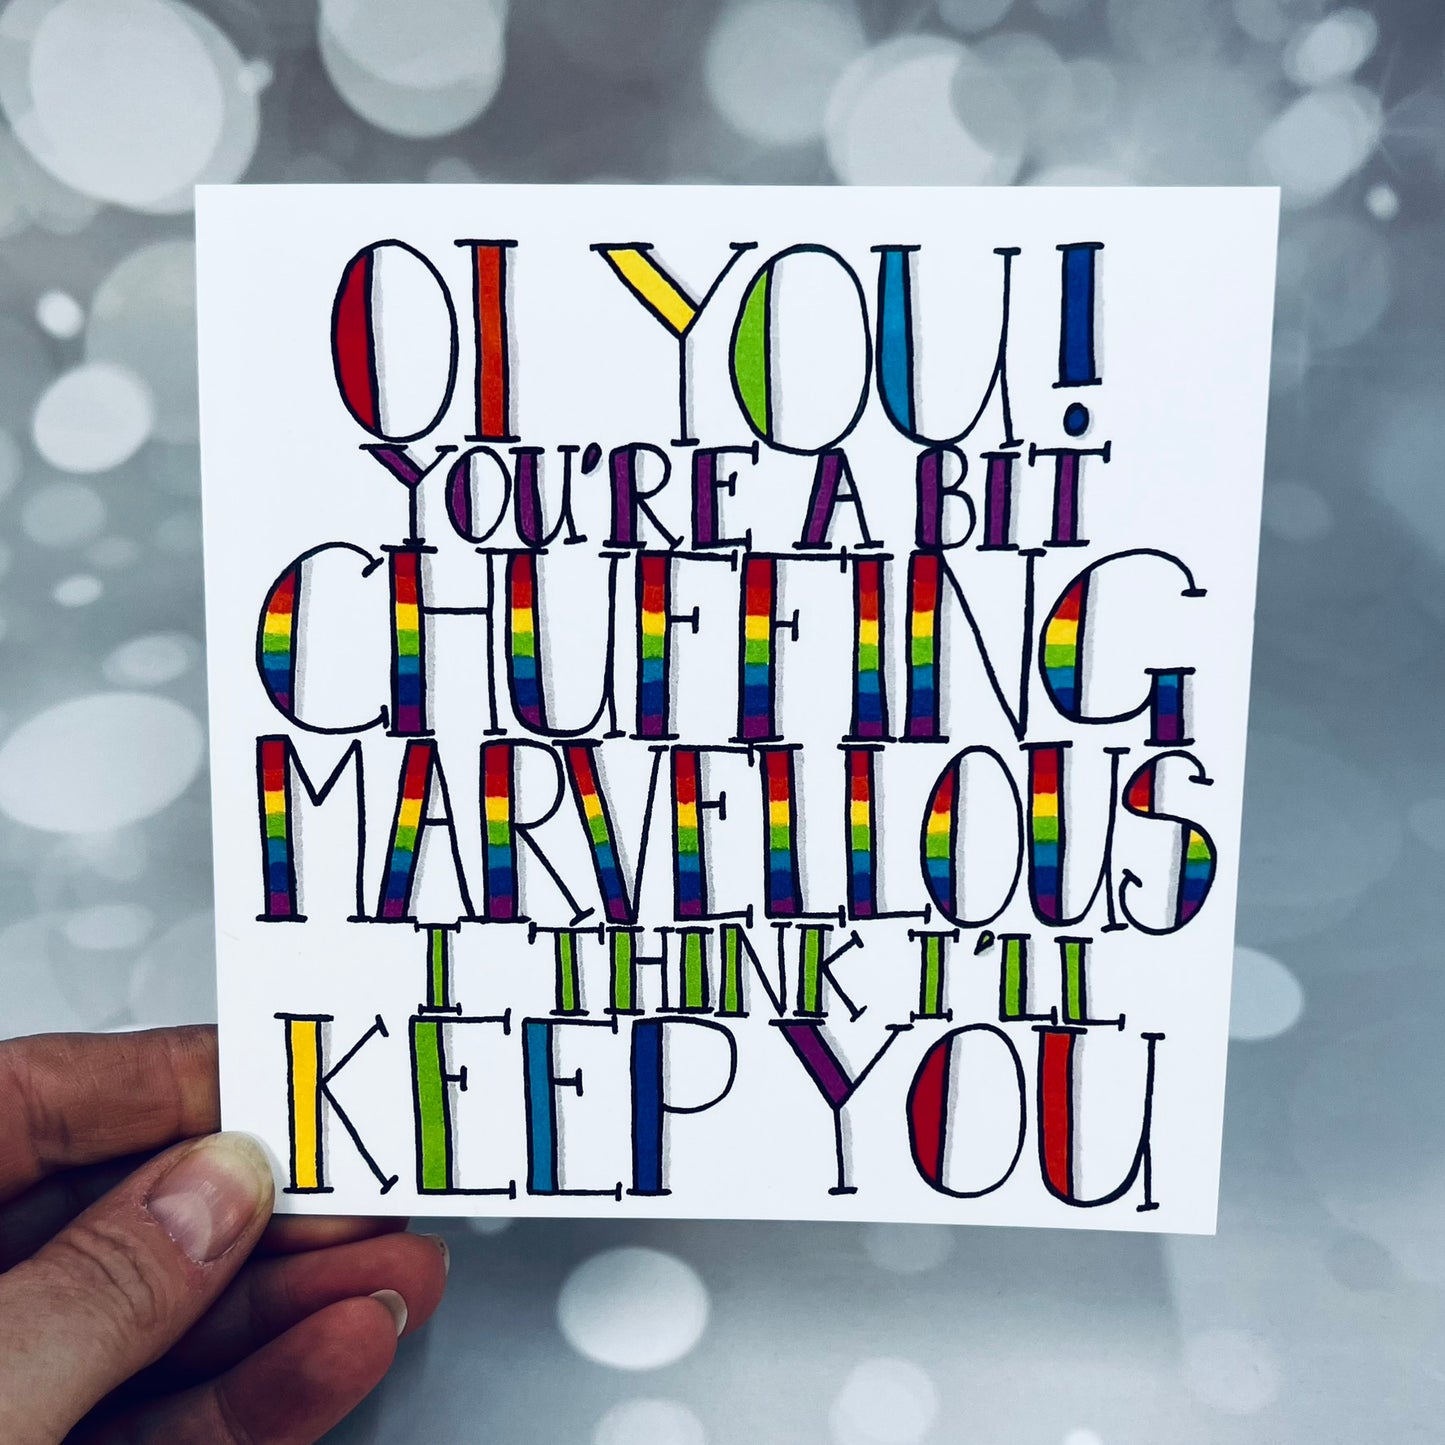 OI YOU!
YOU'RE A BIT
CHUFFING
MARVELLOUS
I THINK I'LL
KEEP YOU